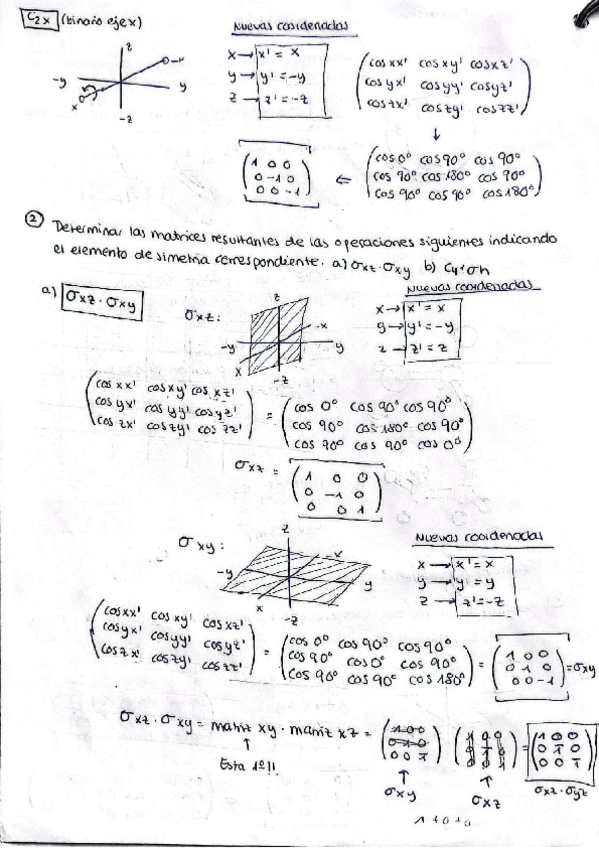 C₂ₓ (binario eje x)
Nuevas coordenadas
z
-x
-y
y
x
-z
x → x' = x
y → y' = -y
z → z' = -z
cos xx' cos xy' cos xz'
cos yx' cos yy' cos yz'
cos zx' cos zy' cos zz'
↓
1 0 0
0 -1 0
0 0 -1
⇐
cos 0° cos 90° cos 90°
cos 90° cos 180° cos 90°
cos 90° cos 90° cos 180°
② Determinar las matrices resultantes de las operaciones siguientes indicando
el elemento de simetría correspondiente. a) σxz · σxy b) C₄ · σh
a) σxz · σxy
σxz :
z
-x
-y
y
x
-z
Nuevas coordenadas
x → x' = x
y → y' = -y
z → z' = z
cos xx' cos xy' cos xz'
cos yx' cos yy' cos yz'
cos zx' cos zy' cos zz'
=
cos 0° cos 90° cos 90°
cos 90° cos 180° cos 90°
cos 90° cos 90° cos 0°
σxz =
1 0 0
0 -1 0
0 0 1
σxy :
z
-x
-y
y
x
-z
Nuevas coordenadas
x → x' = x
y → y' = y
z → z' = -z
cos xx' cos xy' cos xz'
cos yx' cos yy' cos yz'
cos zx' cos zy' cos zz'
=
cos 0° cos 90° cos 90°
cos 90° cos 0° cos 90°
cos 90° cos 90° cos 180°
=
1 0 0
0 1 0
0 0 -1
= σxy
σxz · σxy = matriz xy · matriz xz =
↑
Esta 1º!!
1 0 0
0 1 0
0 0 1̄
↑
σxy
↑
σxz
=
1 0 0
0 1̄ 0
0 0 1̄
σxz · σyz
1+0+0